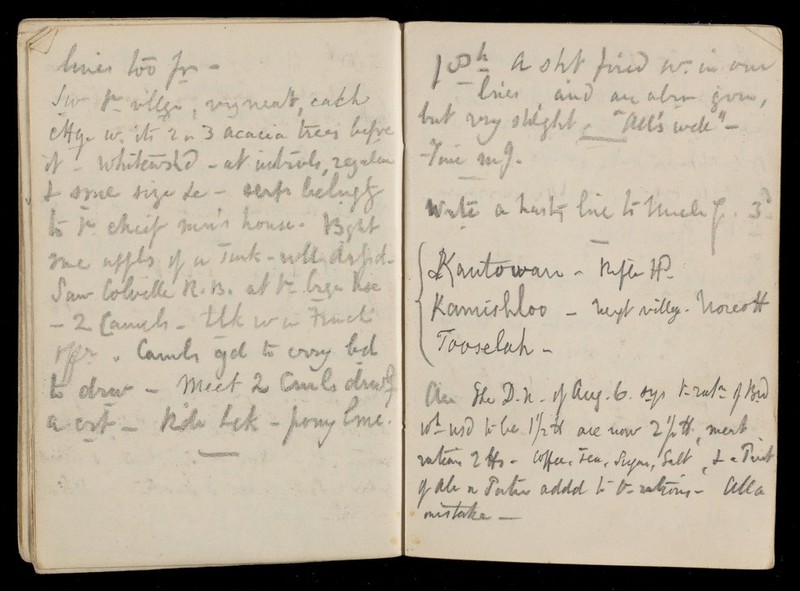 lines too far -
Saw the villge, very neat, each
cttge w. its 2 or 3 acacia trees before
it - whitewshd - at intrvals, regular
& same size &c - belngg
to the chief man's house. Bght
some appls of a Turk - well
Saw Colville R.B. at the large hse
- 2 Camels - Tlk w a French
offr. Camels gd to crry bd
to draw - Meet 2 Camls drawg
a crt - Ride bck - pony lme.
18th A sht fired in our
lines and an alrm given,
but very slight - "All's well" -
Write a hasty line to Uncle G. 3d
Kantowan - Rifle
Kamishloo - next villge. Norcott
Tooselah -
The D.N. of Aug. 6. sys the ratn of Brd
wh usd to be 1 1/2 lb are now 2 1/2 lb, meat
rations 2 lbs - Coffee, Tea, Sugar, Salt, & a Pint
of Ale or Porter addd to the rations - All a
mistake -